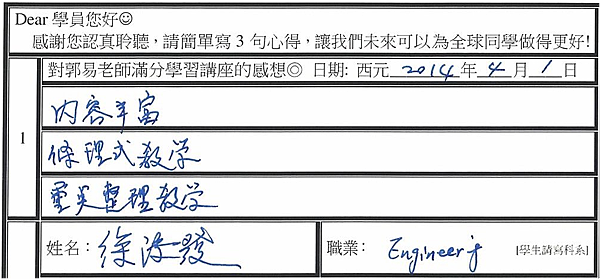 Dear 學員您好☺
感謝您認真聆聽，請簡單寫 3 句心得，讓我們未來可以為全球同學做得更好!
對郭易老師滿分學習講座的感想◎ 日期: 西元 2014 年 4 月 1 日
1
內容丰富
條理式教学
重点整理教学
姓名: 徐 發 職業: Engineer [學生請寫科系]